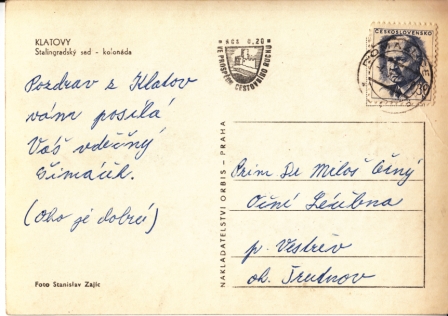 KLATOVY
Stalingradský sad - kolonáda
KČS 0,20
VE PROSPĚCH CESTOVNÍHO RUCHU
ČESKOSLOVENSKO
Pozdrav z Klatov
vám posílá
Váš vděčný
Šimáček.
(Oko je dobré)
Foto Stanislav Zajíc
NAKLADATELSTVÍ ORBIS - PRAHA
Prim Dr Miloš Černý
Oční Léčebna
p. Vestřev
ok. Trutnov